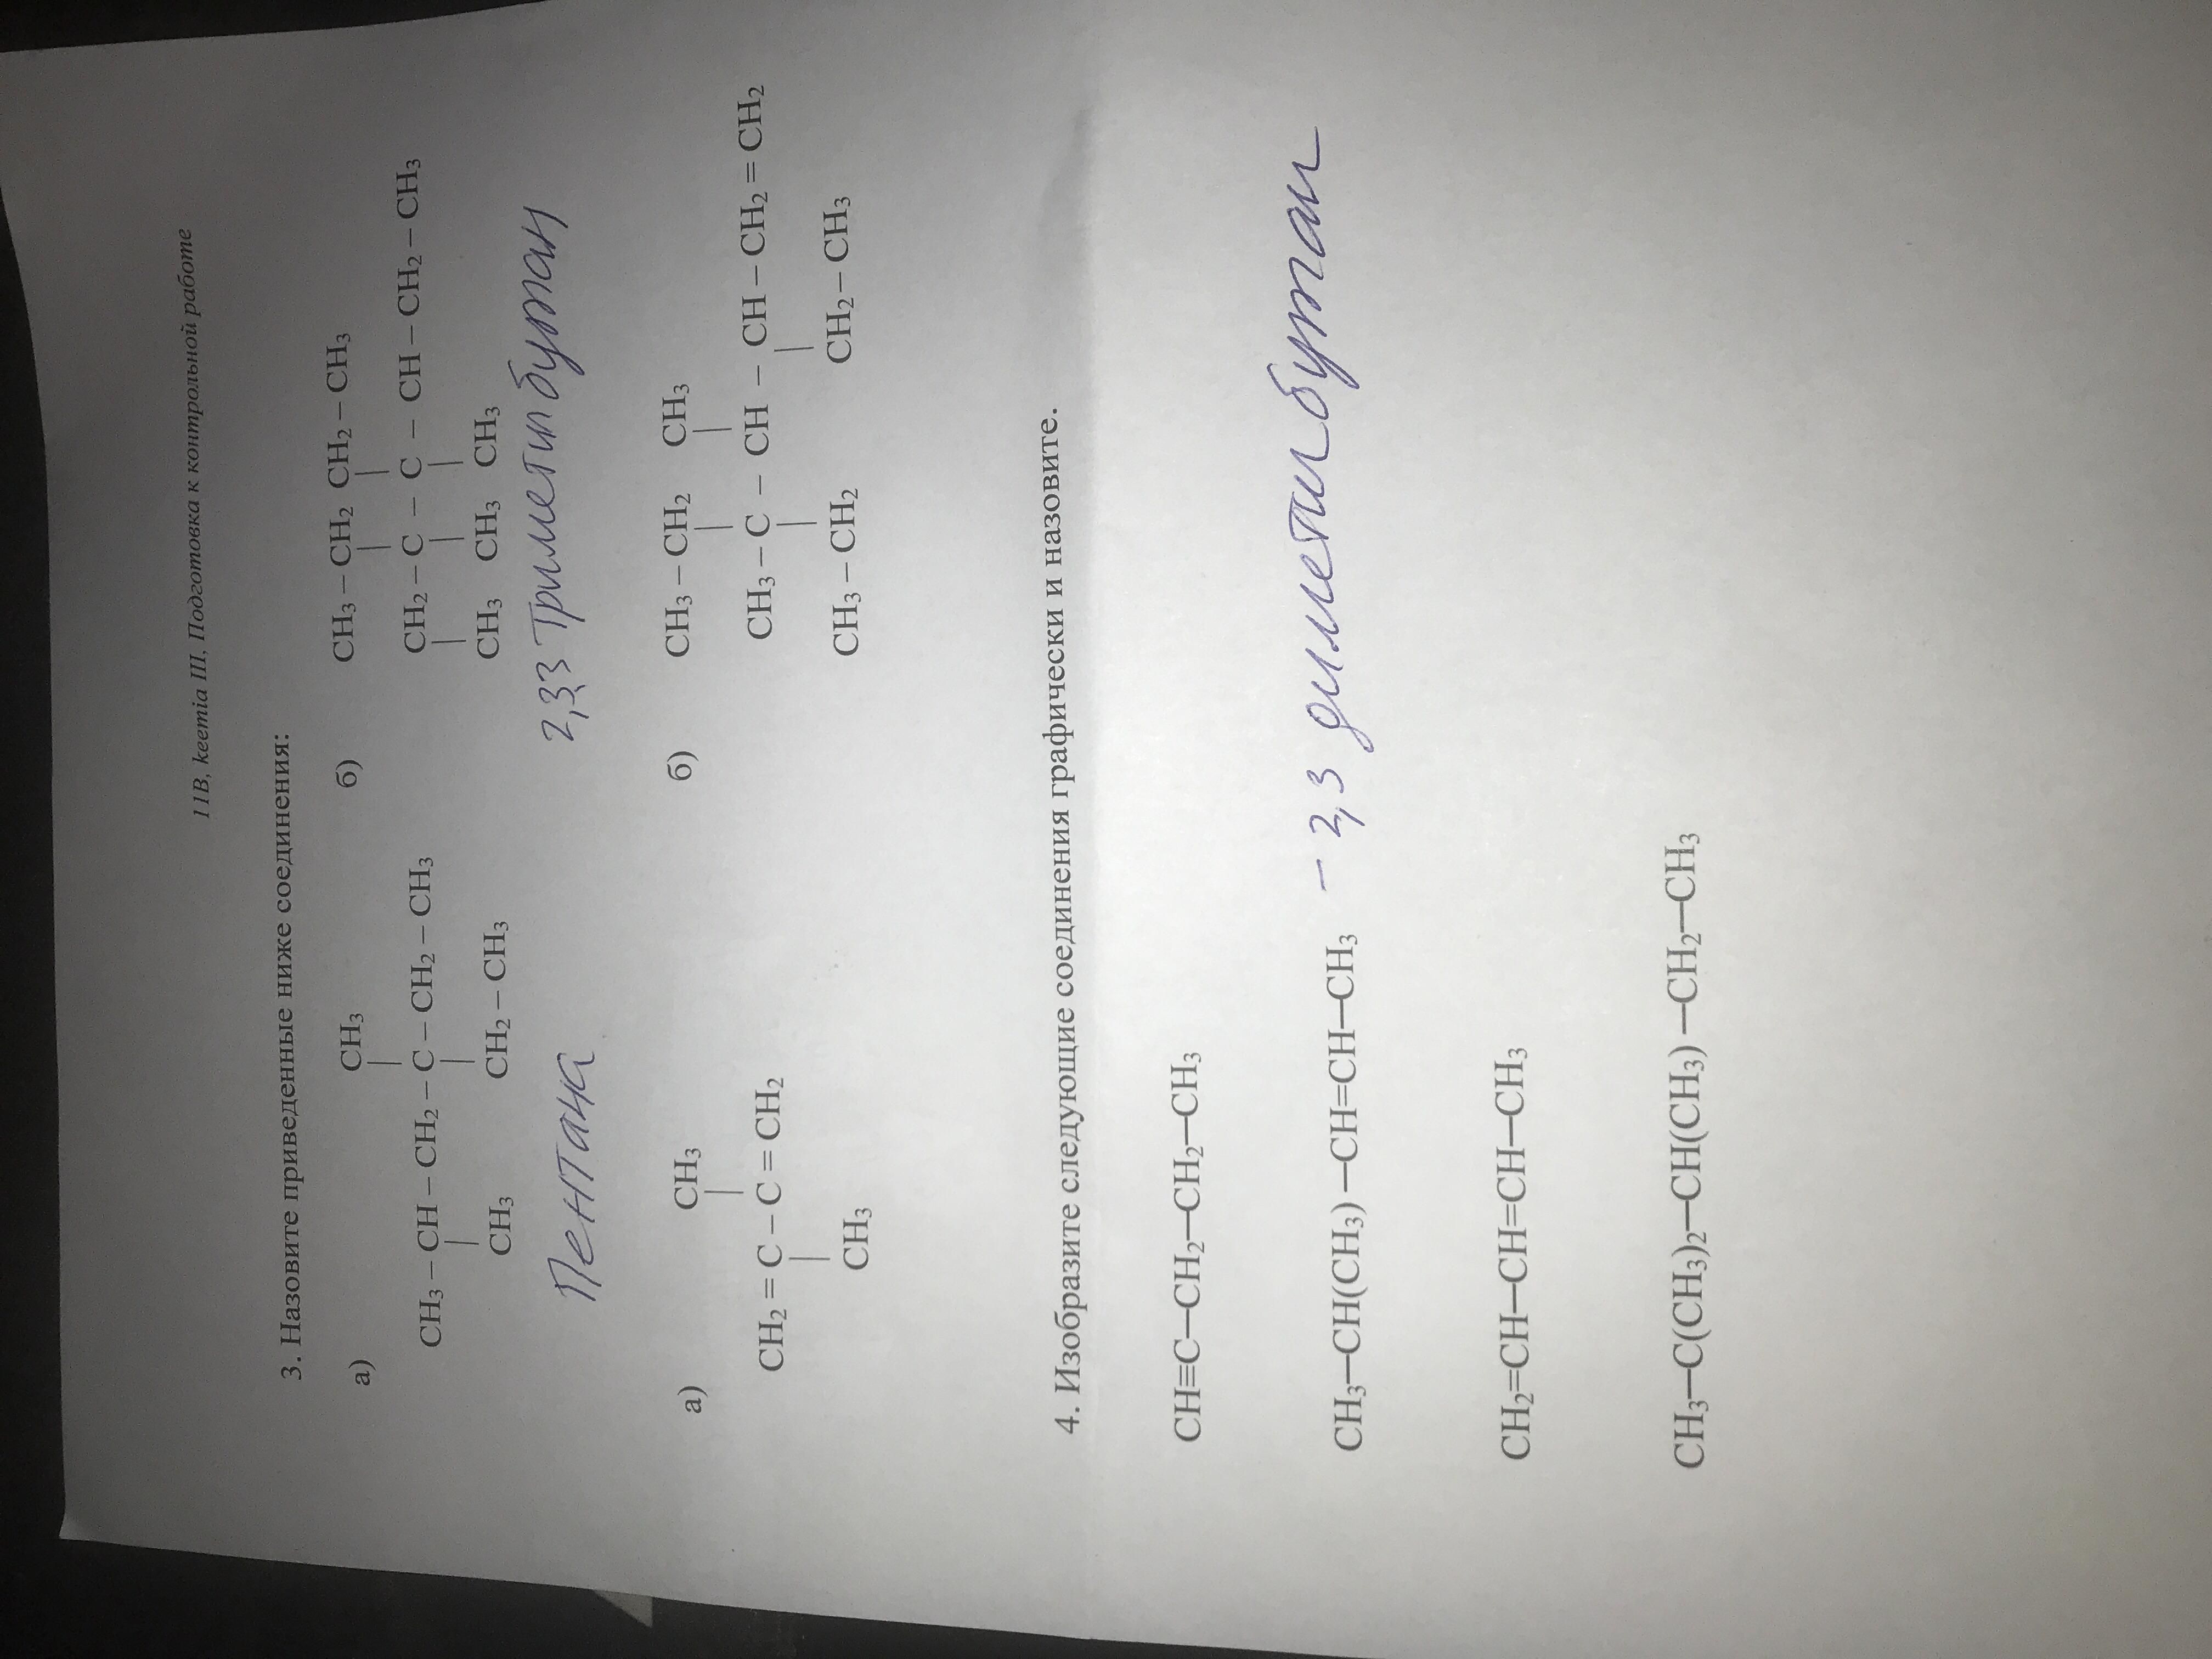 11B, keemia III, Подготовка к контрольной работе
3. Назовите приведенные ниже соединения:
а)
CH₃
CH₃ – CH – CH₂ – C – CH₂ – CH₃
CH₃ CH₂ – CH₃
Пентана
б)
CH₃ – CH₂ CH₂ – CH₃
CH₂ – C – C – CH – CH₂ – CH₃
CH₃ CH₃ CH₃
2,3,3 Триметилбутан
а)
CH₃
CH₂ = C – C = CH₂
CH₃
б)
CH₃ – CH₂ CH₃
CH₃ – C – CH – CH – CH₂ = CH₂
CH₃ – CH₂ CH₂ – CH₃
4. Изобразите следующие соединения графически и назовите.
CH≡C—CH₂—CH₂—CH₃
CH₃—CH(CH₃) —CH=CH—CH₃ – 2,3 диметилбутан
CH₂=CH—CH=CH—CH₃
CH₃—C(CH₃)₂—CH(CH₃) —CH₂—CH₃